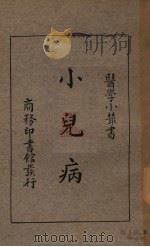 醫學小叢書
小兒病
商務印書館發行